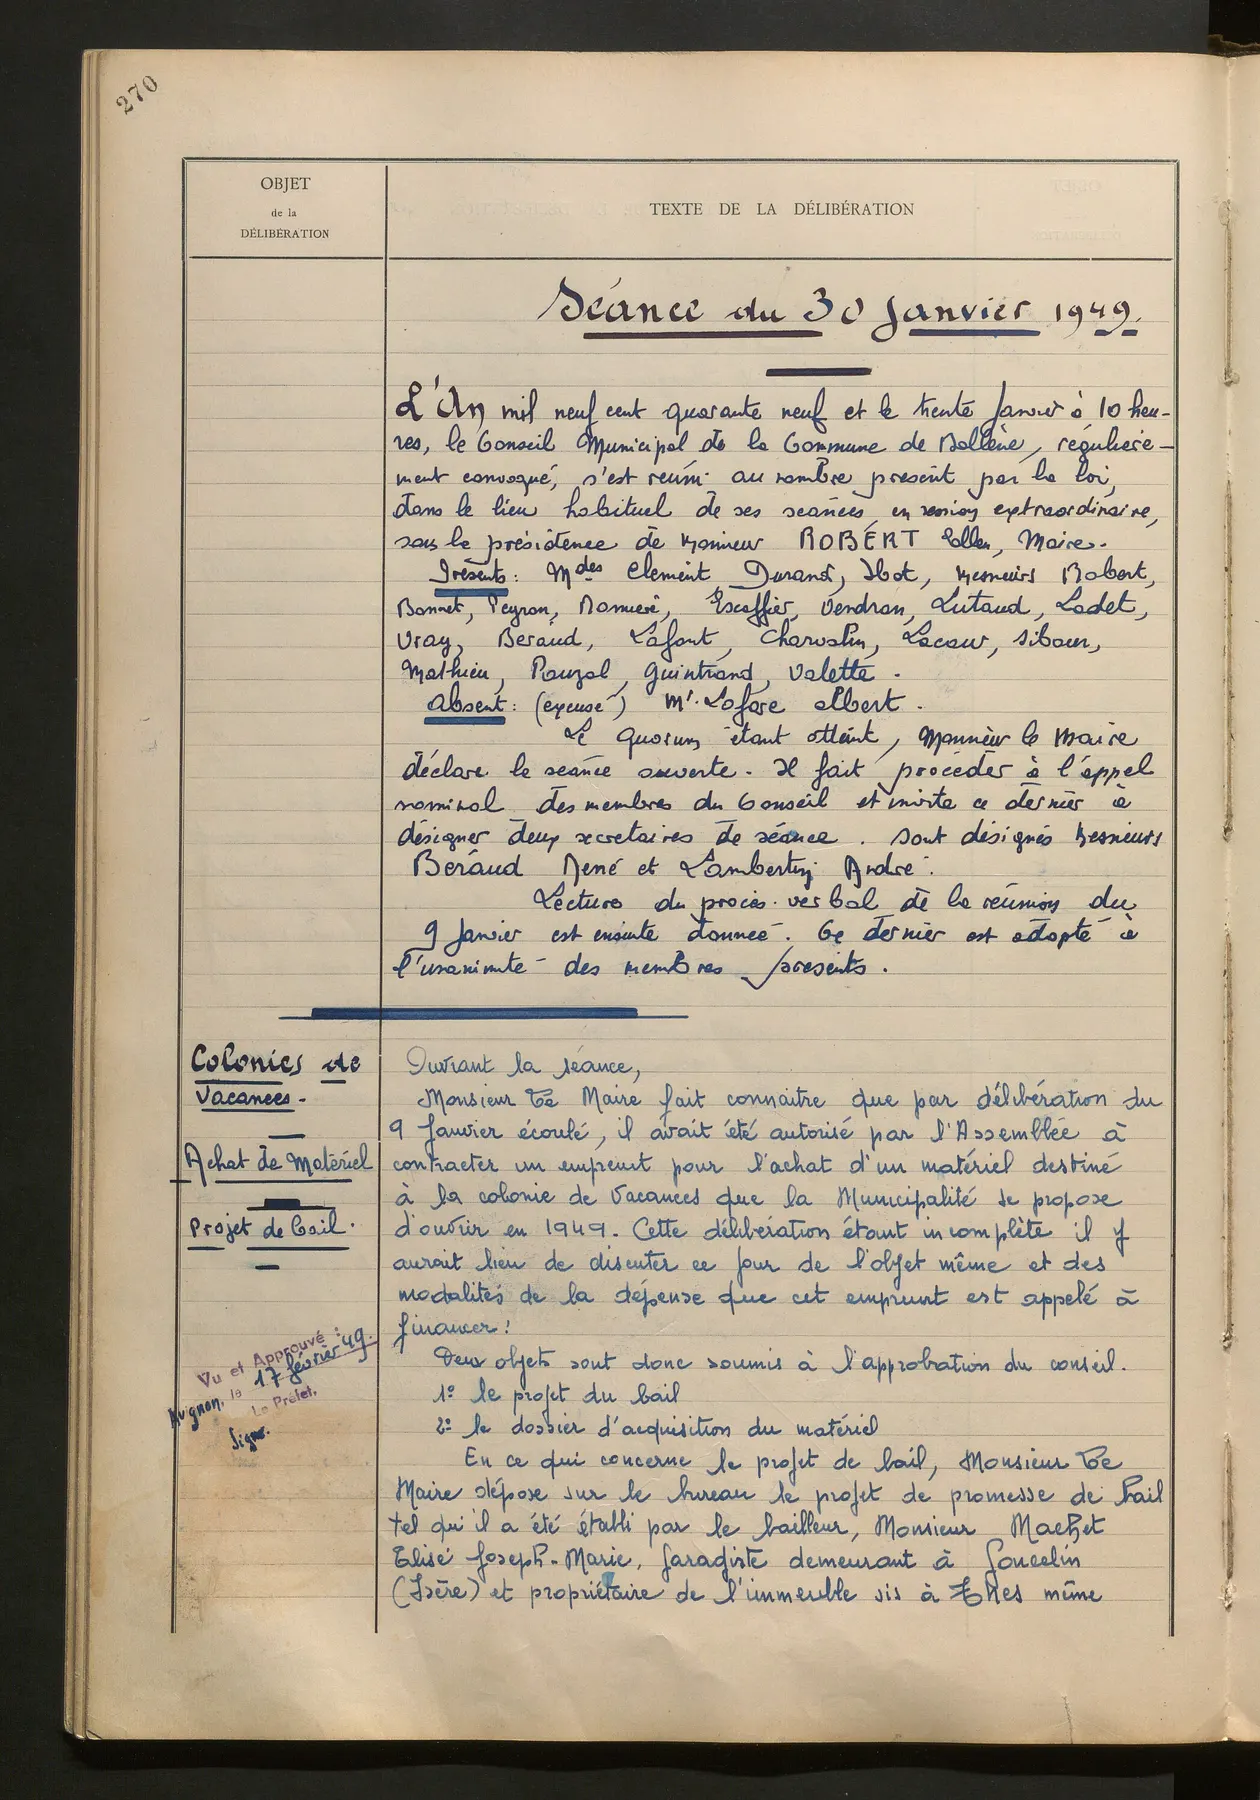 270
OBJET
de la
DÉLIBÉRATION
TEXTE DE LA DÉLIBÉRATION
Séance du 30 Janvier 1949.
L'An mil neuf cent quarante neuf et le trente Janvier à 10 heu-
res, le Conseil Municipal de la Commune de Bollène, régulière-
ment convoqué, s'est réuni au nombre présent par la loi,
dans le lieu habituel de ses séances, en session extraordinaire,
sous la présidence de Monsieur ROBERT, Maire.
Présents : Mdes Clement, Durand, Ibot, Messieurs Robert,
Bonnet, Peyron, Escoffier, Vendran, Lutaud, Ladet,
Vray, Beraud, Lafont, Charvatin, Lacour, Sibour,
Mathieu, Pouzol, Guintrand, Valette.
Absent : (excusé) Mr. Lafare Albert.
Le quorum étant atteint, Monsieur le Maire
déclare la séance ouverte. Il fait procéder à l'appel
nominal des membres du Conseil et invite ce dernier à
désigner deux secretaires de séance. Sont désignés Messieurs
Beraud René et Lambertin André.
Lecture du procès-verbal de la réunion du
9 Janvier est ensuite donnée. Ce dernier est adopté à
l'unanimité des membres présents.
Colonies de
Vacances.-
Achat de Matériel
Projet de bail.
Ouvrant la séance,
Monsieur Le Maire fait connaitre que par délibération du
9 Janvier écoulé, il avait été autorisé par l'Assemblée à
contracter un emprunt pour l'achat d'un matériel destiné
à la colonie de Vacances que la Municipalité se propose
d'ouvrir en 1949. Cette délibération étant incomplète il y
aurait lieu de discuter ce jour de l'objet même et des
modalités de la dépense que cet emprunt est appelé à
financer :
Deux objets sont donc soumis à l'approbation du conseil.
1º le projet du bail
2º le dossier d'acquisition du matériel
En ce qui concerne le projet de bail, Monsieur Le
Maire dépose sur le bureau le projet de promesse de bail
tel qu'il a été établi par le bailleur, Monsieur Machet
Elisé Joseph-Marie, garagiste demeurant à Goncelin
(Isère) et propriétaire de l'immeuble sis à même
Vu et Approuvé :
Avignon, le 17 février 49.
Le Préfet,
Signé.